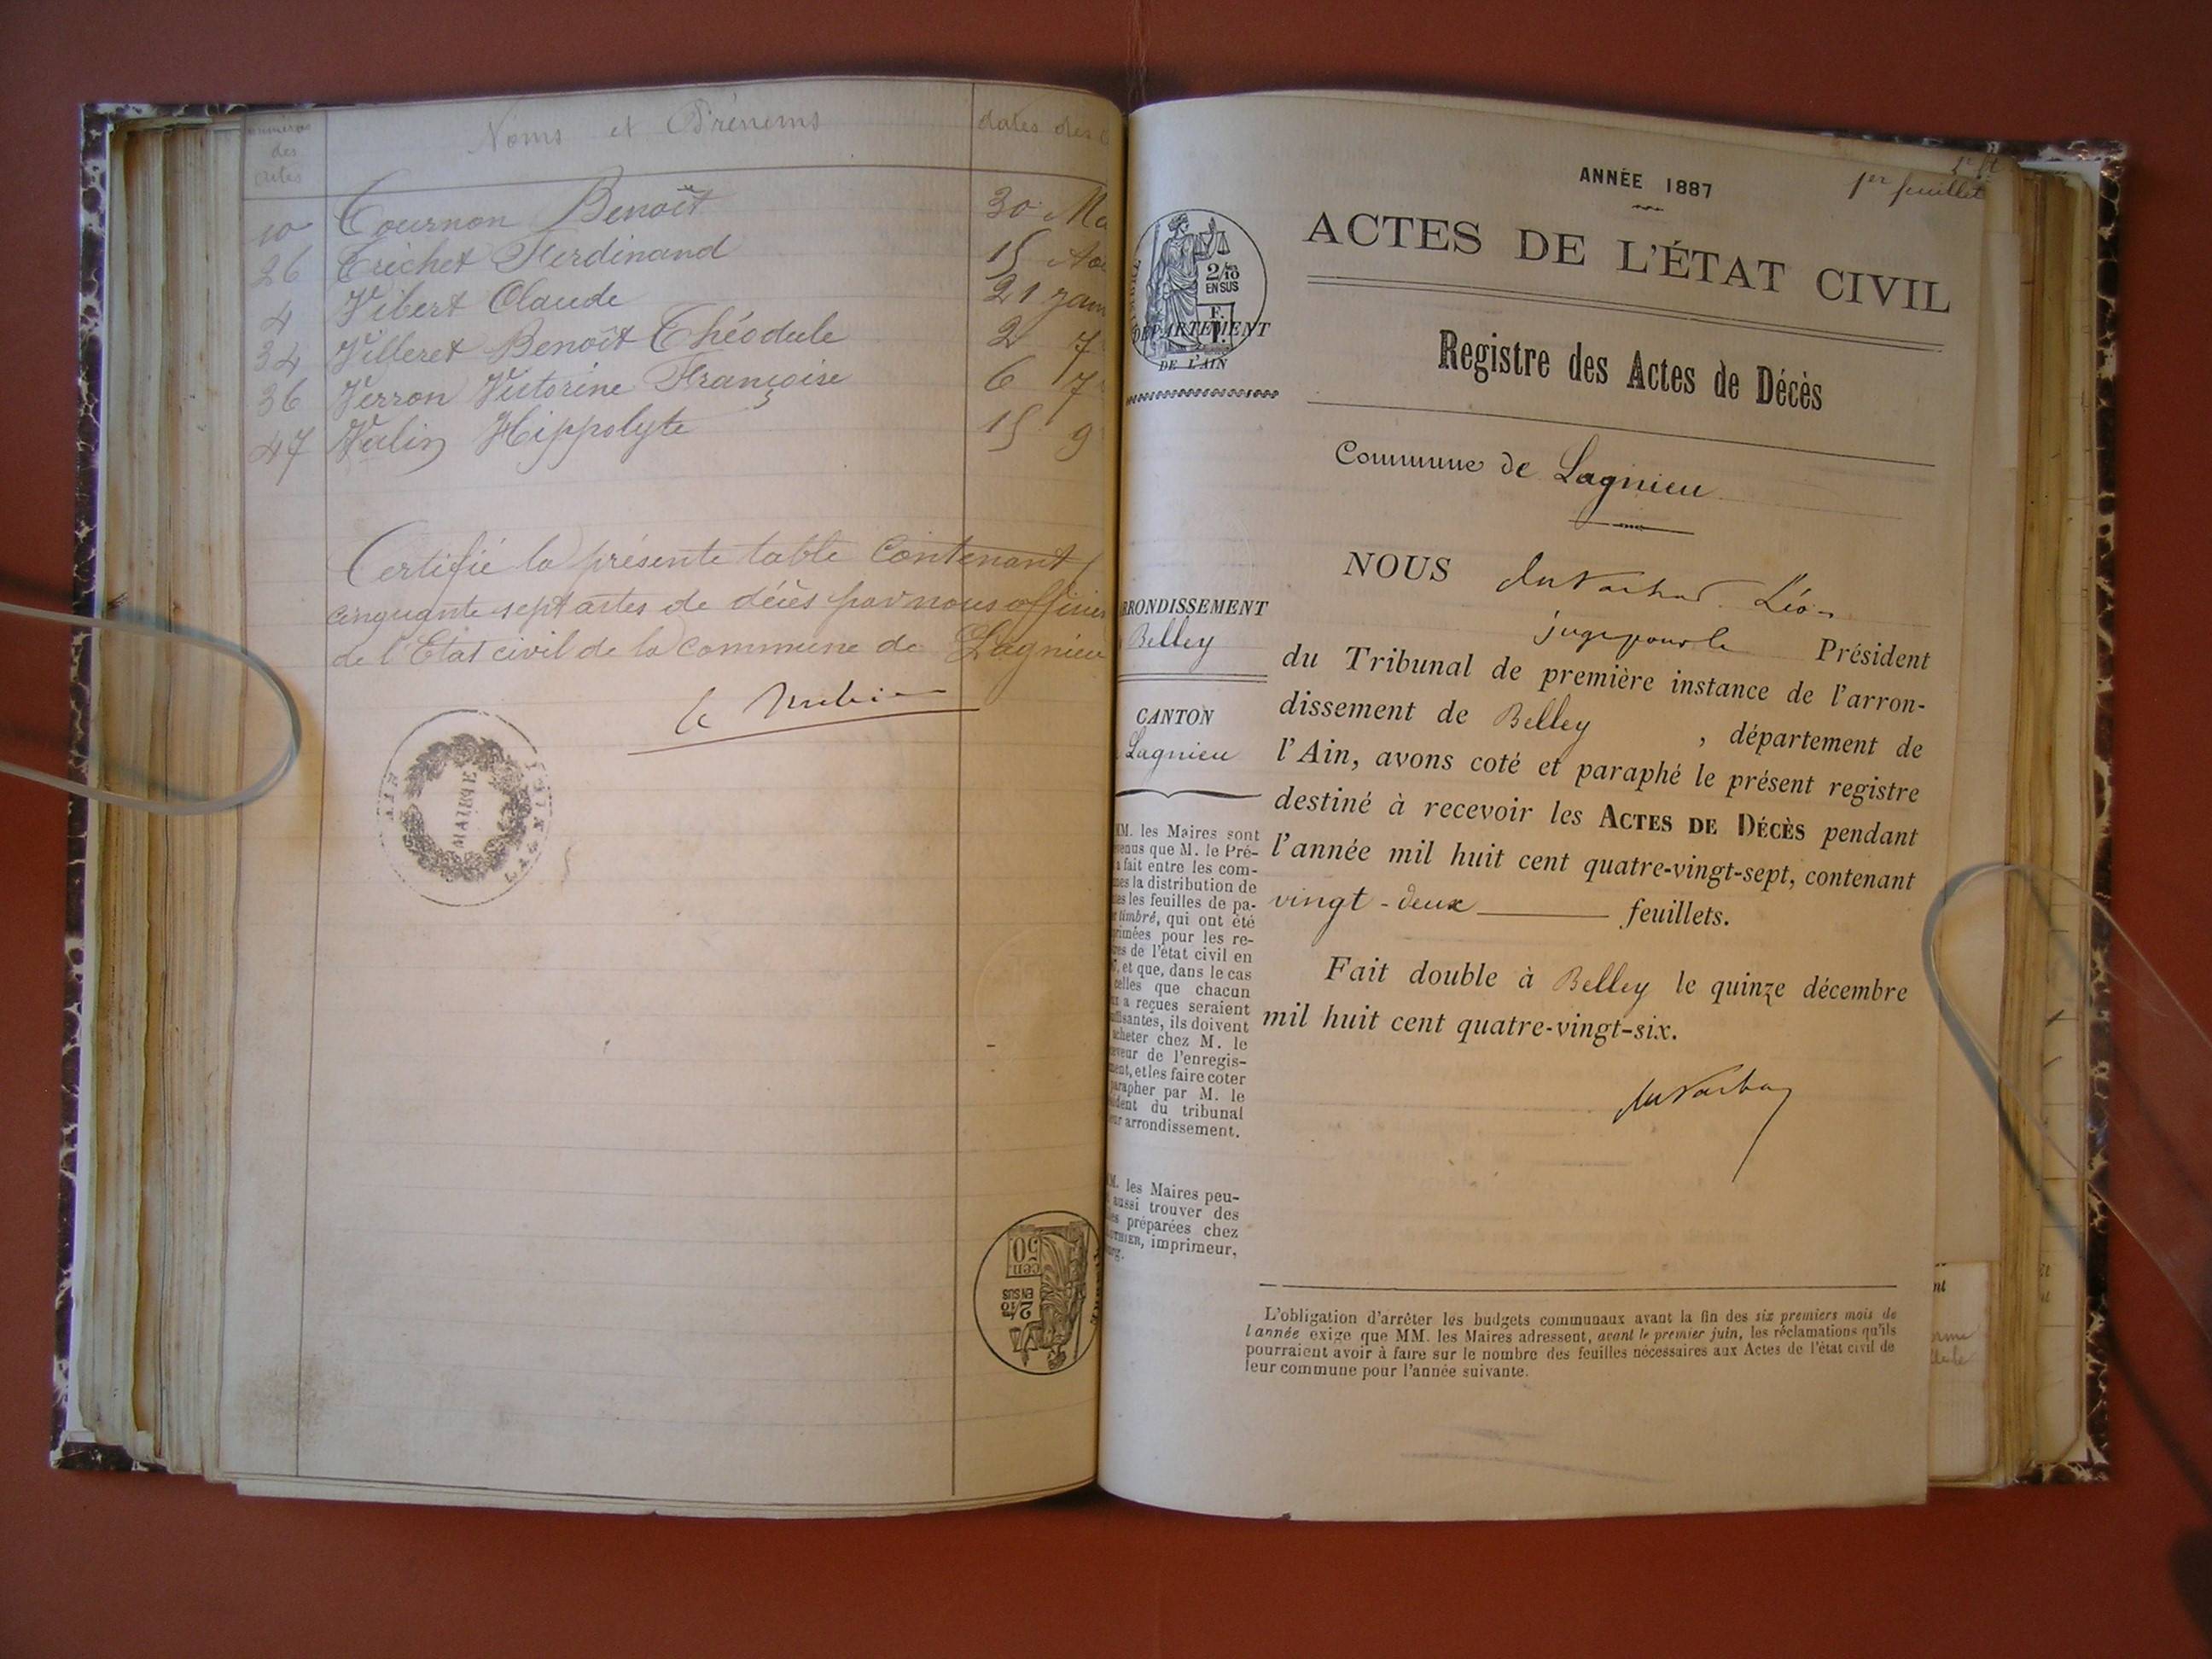 numéros des actes
Noms et Prénoms
dates des
10 Tournon Benoît 30 Ma
26 Trichet Ferdinand 15 Aoû
4 Vibert Claude 21 Janv
34 Villeret Benoît Théodule 2 7
36 Verron Victorine Françoise 6 7
47 Valin Hippolyte 15 9
Certifié la présente table Contenant
cinquante sept actes de décès par nous officier
de l'Etat civil de la commune de Lagnieu
AIN
MAIRIE
LAGNIEU
50
cen
2/10
EN SUS
ANNÉE 1887
1er feuillet
ACTES DE L'ÉTAT CIVIL
2/10
EN SUS
DÉPARTEMENT
DE L'AIN
Registre des Actes de Décès
Commune de Lagnieu
NOUS Léon
juge pour le Président
du Tribunal de première instance de l'arron-
dissement de Belley, département de
l'Ain, avons coté et paraphé le présent registre
destiné à recevoir les ACTES DE DÉCÈS pendant
l'année mil huit cent quatre-vingt-sept, contenant
vingt-deux feuillets.
Fait double à Belley le quinze décembre
mil huit cent quatre-vingt-six.
RRONDISSEMENT
Belley
CANTON
Lagnieu
MM. les Maires sont
venus que M. le Pré-
a fait entre les com-
nes la distribution de
es les feuilles de pa-
r timbré, qui ont été
primées pour les re-
res de l'état civil en
, et que, dans le cas
celles que chacun
x a reçues seraient
ffisantes, ils doivent
acheter chez M. le
ceveur de l'enregis-
ment, et les faire coter
parapher par M. le
sident du tribunal
eur arrondissement.
M. les Maires peu-
aussi trouver des
les préparées chez
UTHIER, imprimeur,
urg.
L'obligation d'arrêter les budgets communaux avant la fin des six premiers mois de
l'année exige que MM. les Maires adressent, avant le premier juin, les réclamations qu'ils
pourraient avoir à faire sur le nombre des feuilles nécessaires aux Actes de l'état civil de
leur commune pour l'année suivante.